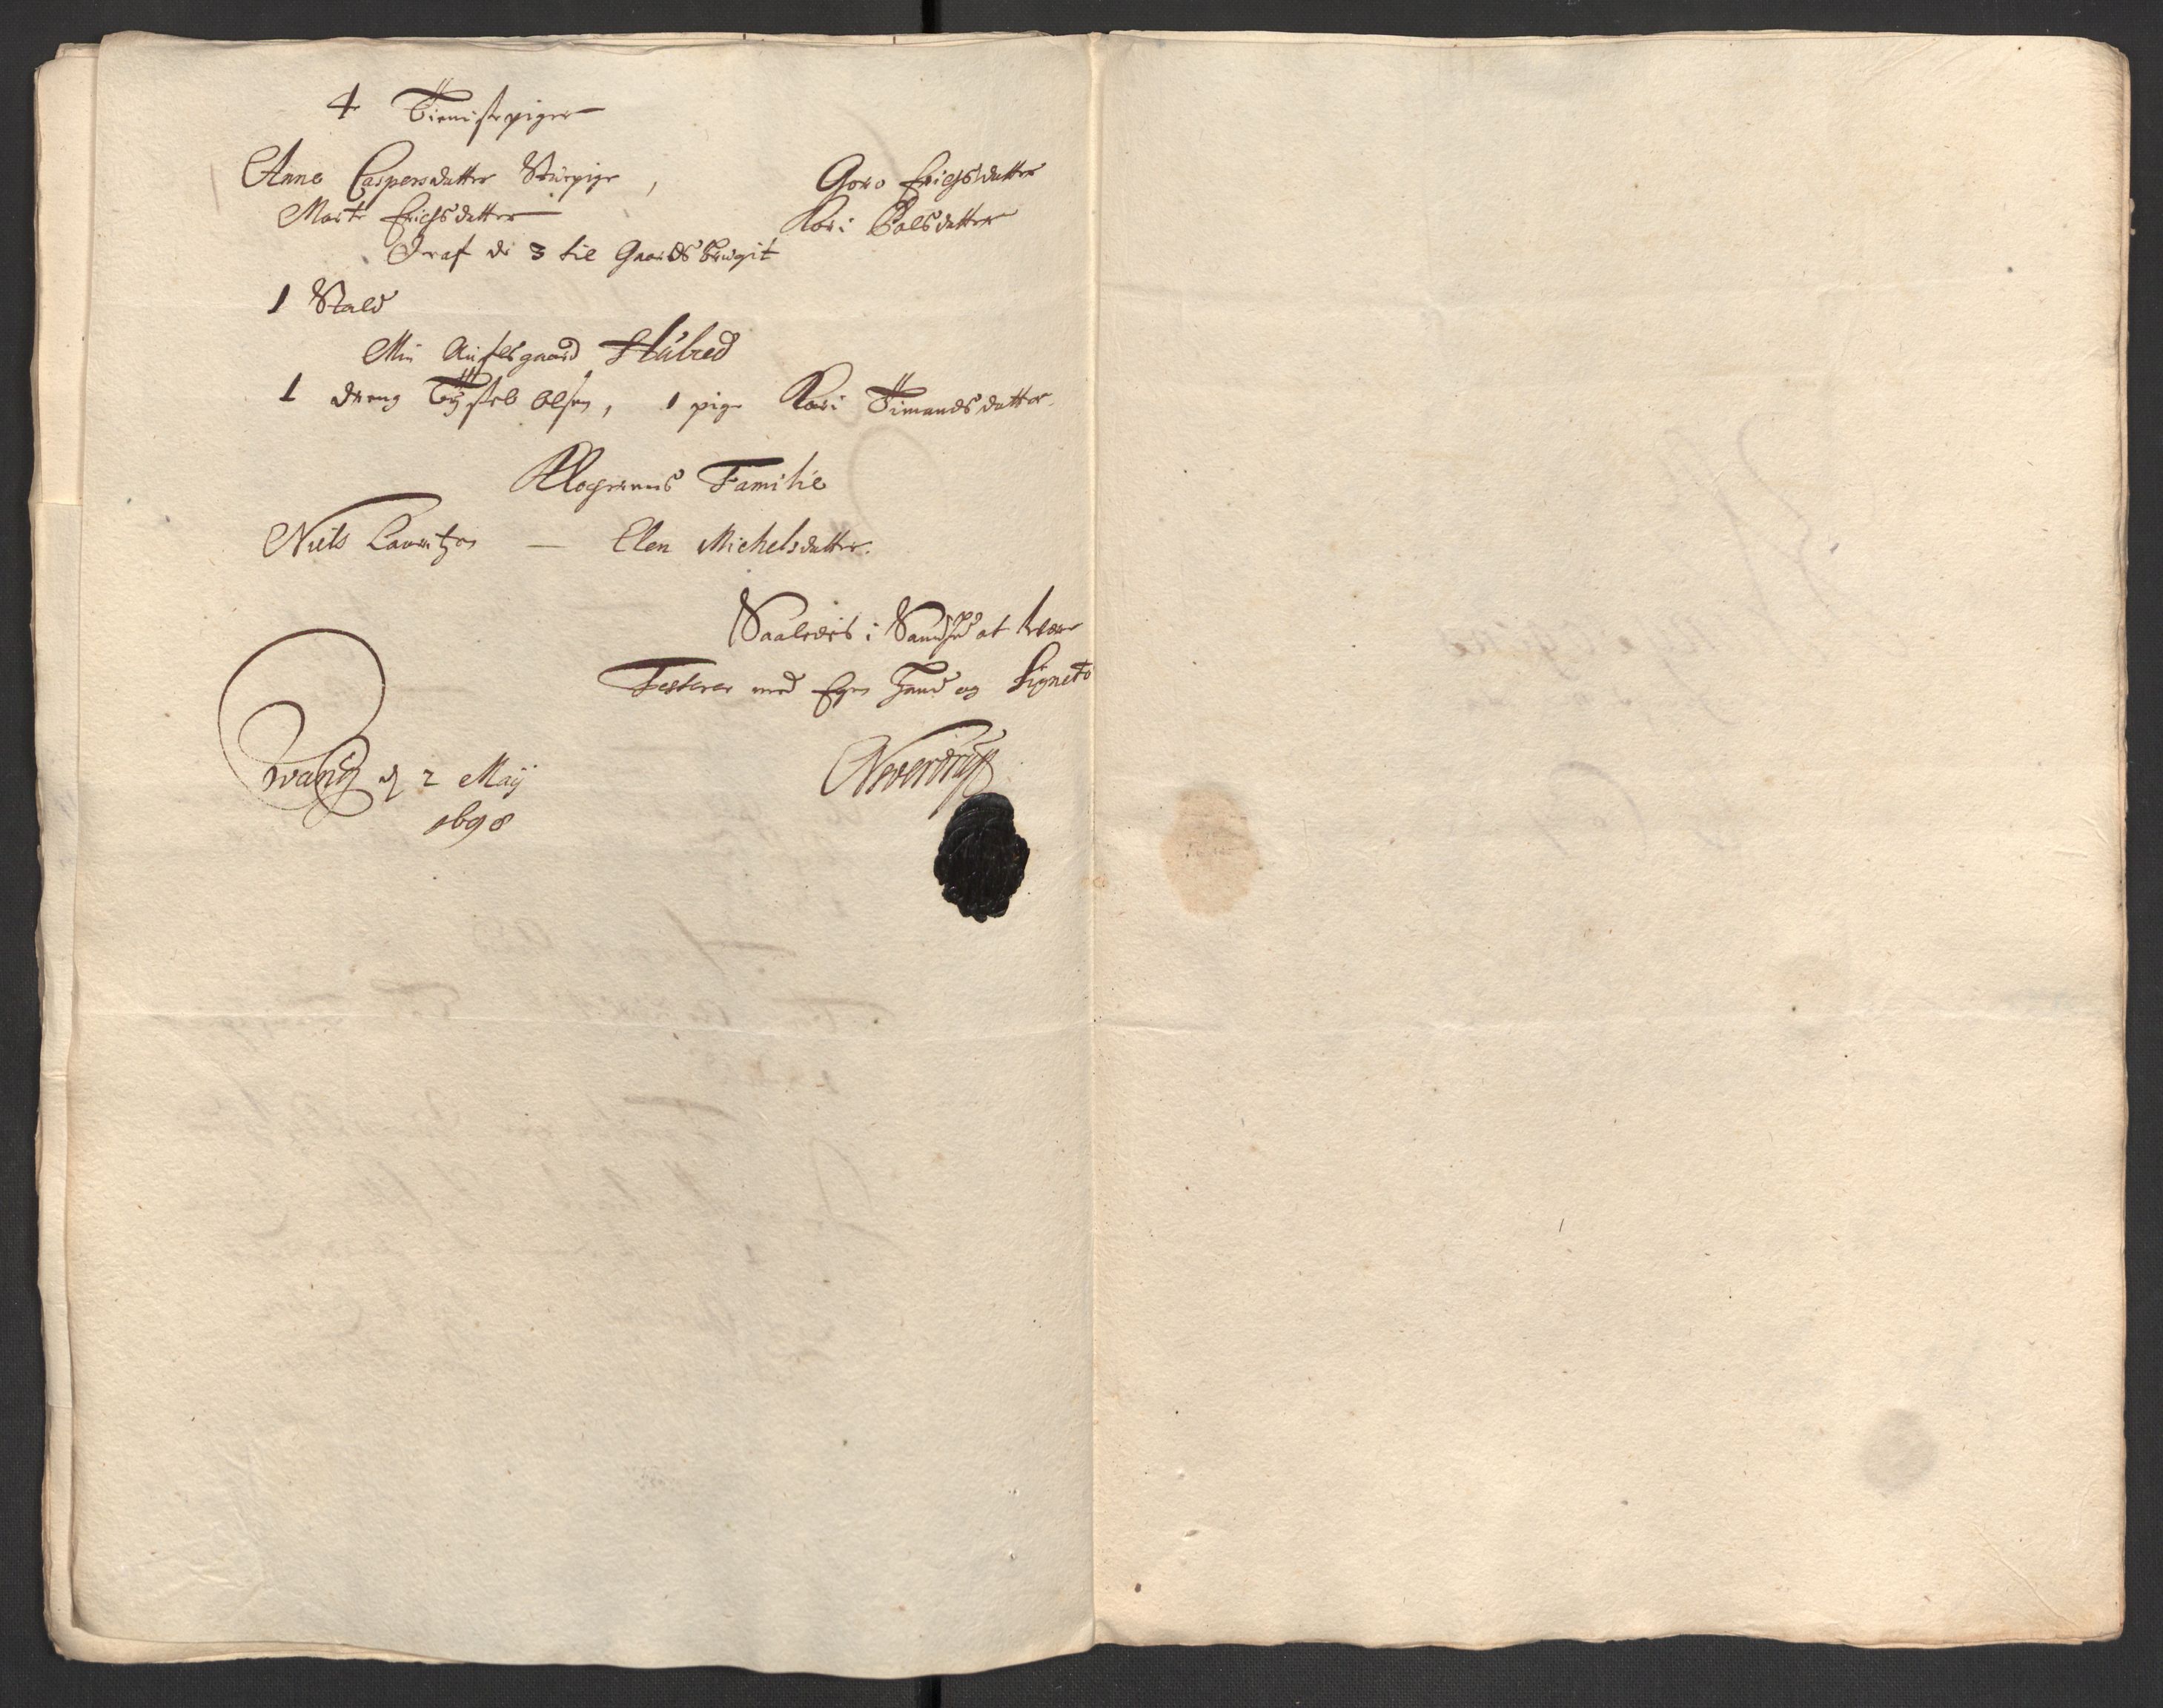 4 Tienistepiger
Anne Caspersdatter Stuepige, Goro Erichsdatter
Marte Erichsdatter Kari Polsdatter
Deraf de 3 til Gaards brugit
1 Stald
Min Aufelsgaard Stubred
1 dreng Tøstel Olsen, 1 pige Kari Simandsdatter
Klogerens Familie
Niels Lauritzen — Elen Michelsdatter.
Saaledis i Sandhed at være
Testerer med Egen Haand og Signete
Wang d 2 Maij
1698